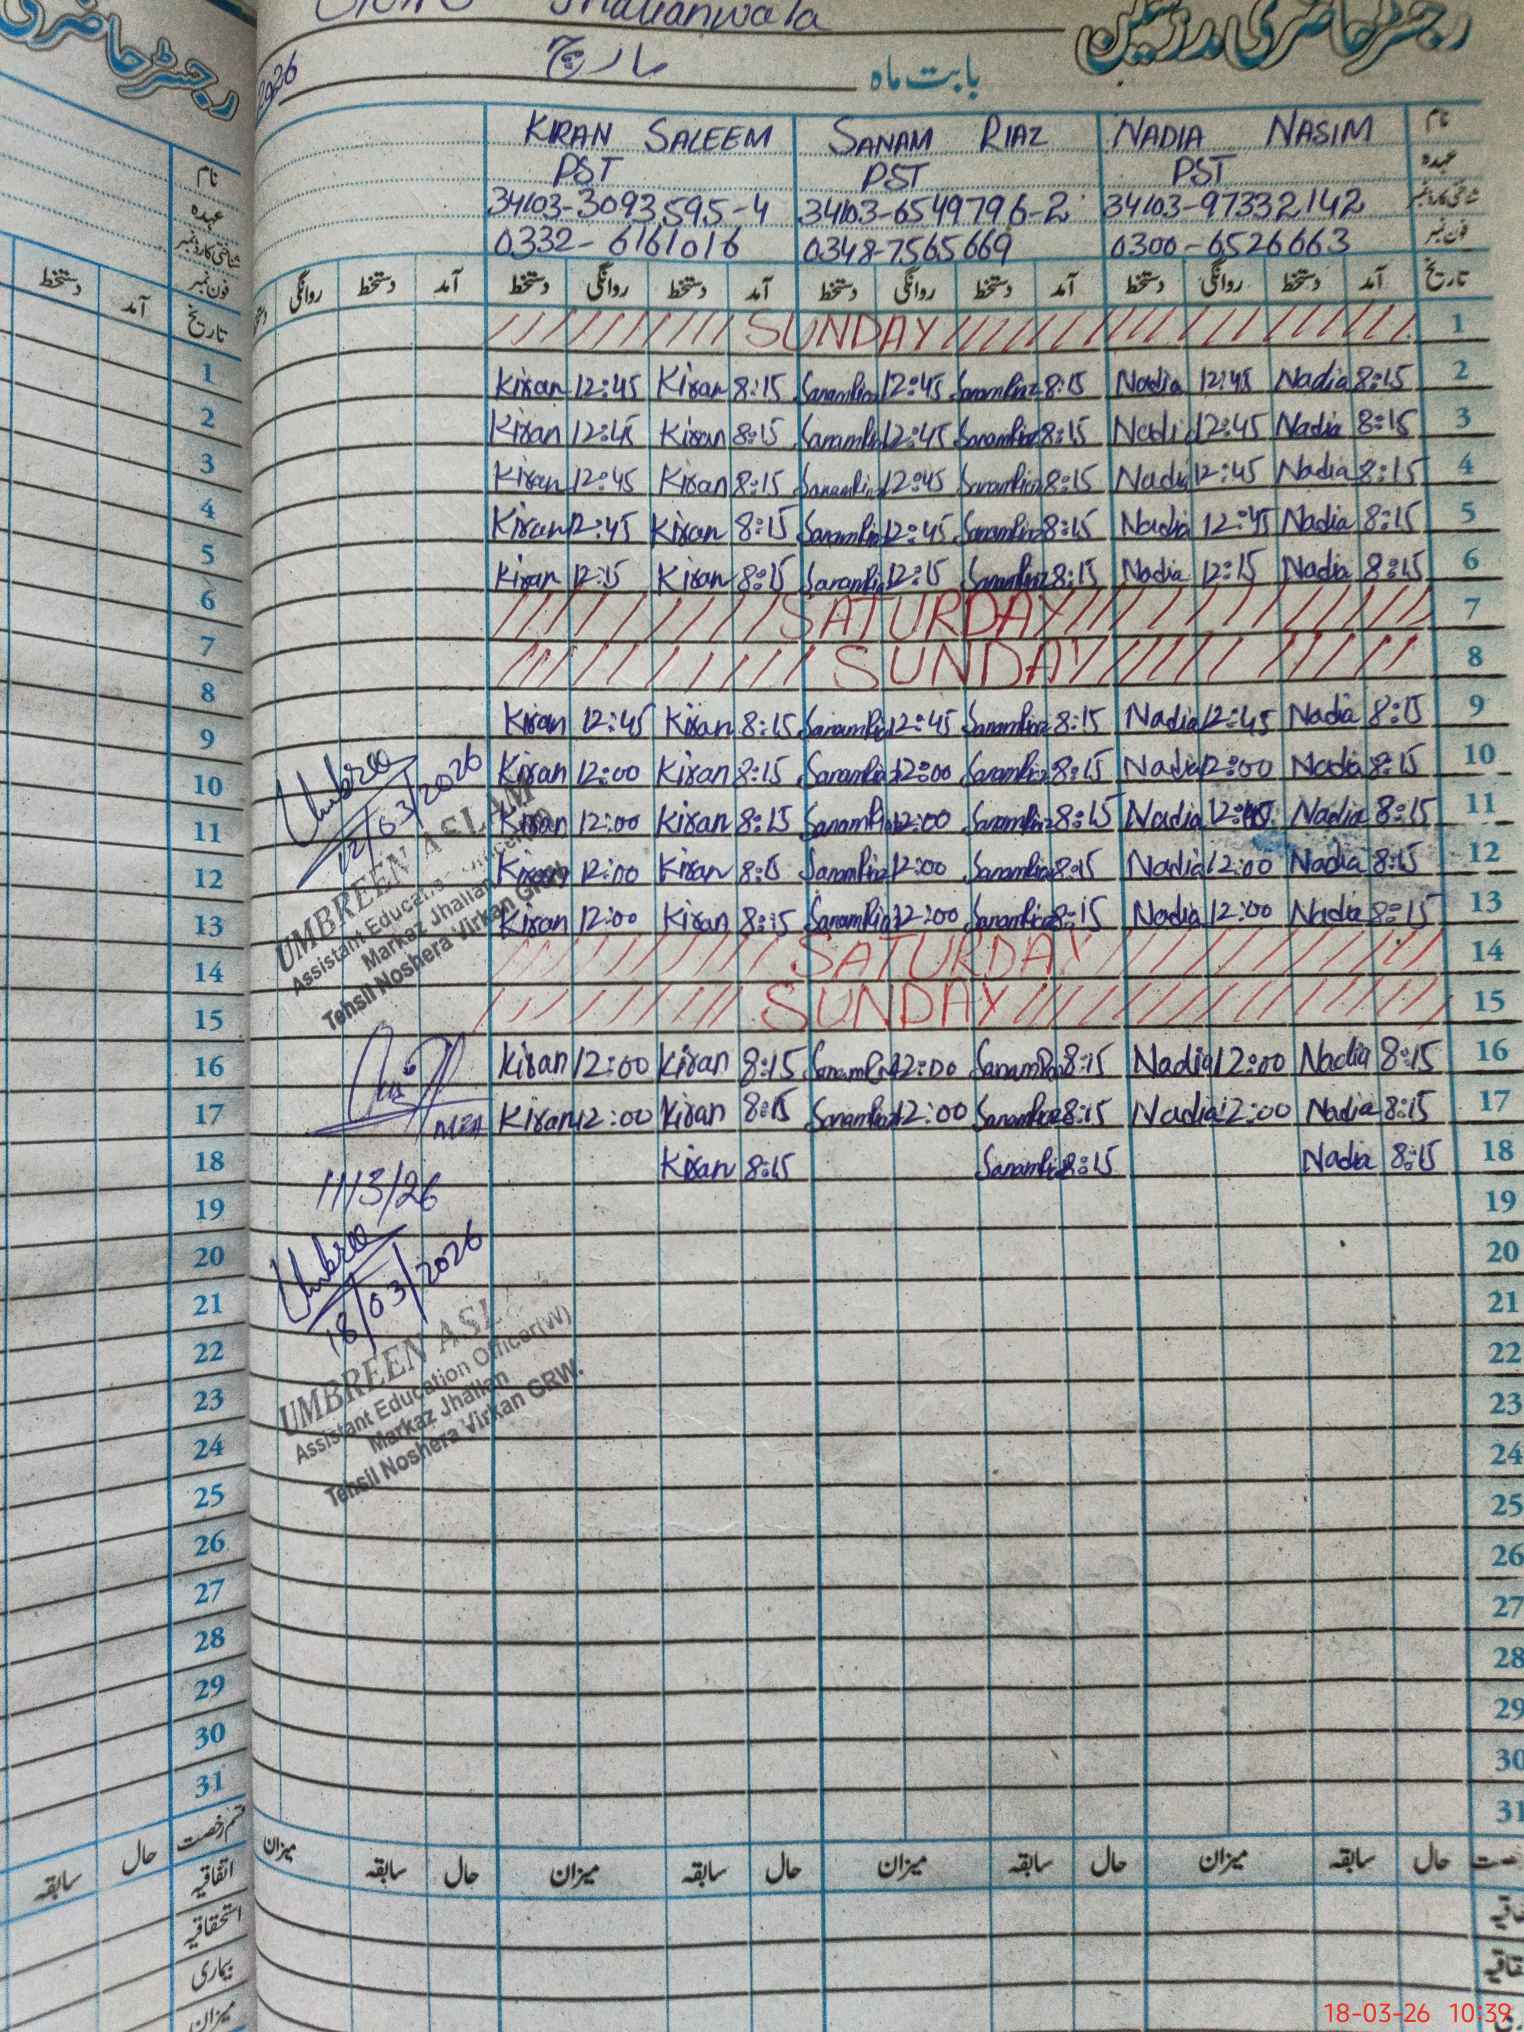 رجسٹر حاضری مدرسین
Jhallanwala
بابت ماہ مارچ 2026
نام KIRAN SALEEM SANAM RIAZ NADIA NASIM
عہدہ PST PST PST
شناختی کارڈ نمبر 34103-3093595-4 34103-6549796-2 34103-97332142
فون نمبر 0332-6161016 0348-7565669 0300-6526663
روانگی دستخط آمد دستخط روانگی دستخط آمد دستخط روانگی دستخط آمد دستخط روانگی دستخط آمد تاریخ
SUNDAY 1
Kiran 12:45 Kiran 8:15 SanamRiaz 12:45 SanamRiaz 8:15 Nadia 12:45 Nadia 8:15 2
Kiran 12:45 Kiran 8:15 SanamRiaz 12:45 SanamRiaz 8:15 Nadia 12:45 Nadia 8:15 3
Kiran 12:45 Kiran 8:15 SanamRiaz 12:45 SanamRiaz 8:15 Nadia 12:45 Nadia 8:15 4
Kiran 12:45 Kiran 8:15 SanamRiaz 12:45 SanamRiaz 8:15 Nadia 12:45 Nadia 8:15 5
Kiran 12:15 Kiran 8:15 SanamRiaz 12:15 SanamRiaz 8:15 Nadia 12:15 Nadia 8:15 6
SATURDAY 7
SUNDAY 8
Kiran 12:45 Kiran 8:15 SanamRiaz 12:45 SanamRiaz 8:15 Nadia 12:45 Nadia 8:15 9
Kiran 12:00 Kiran 8:15 SanamRiaz 12:00 SanamRiaz 8:15 Nadia 12:00 Nadia 8:15 10
Kiran 12:00 Kiran 8:15 SanamRiaz 12:00 SanamRiaz 8:15 Nadia Nadia 8:15 11
Kiran 12:00 Kiran 8:15 SanamRiaz 12:00 SanamRiaz 8:15 Nadia 12:00 Nadia 8:15 12
Kiran 12:00 Kiran 8:15 SanamRiaz 12:00 SanamRiaz 8:15 Nadia 12:00 Nadia 8:15 13
SATURDAY 14
SUNDAY 15
Kiran 12:00 Kiran 8:15 SanamRiaz 12:00 SanamRiaz 8:15 Nadia 12:00 Nadia 8:15 16
Kiran 12:00 Kiran 8:15 SanamRiaz 12:00 SanamRiaz 8:15 Nadia 12:00 Nadia 8:15 17
Kiran 8:15 SanamRiaz 8:15 Nadia 8:15 18
19
20
21
22
23
24
25
26
27
28
29
30
31
Umbreen
12/03/2026
UMBREEN ASLAM
Assistant Education
Markaz Jhallan
Tehsil Noshera Virkan GRW.
MEA
11/3/26
Umbreen
18/03/2026
UMBREEN ASL
Assistant Education Officer(W)
Markaz Jhallan
Tehsil Noshera Virkan GRW.
میزان سابقہ حال میزان سابقہ حال میزان سابقہ حال میزان سابقہ حال
رجسٹر حاضری
نام
عہدہ
شناختی کارڈ نمبر
فون نمبر
دستخط آمد تاریخ
1
2
3
4
5
6
7
8
9
10
11
12
13
14
15
16
17
18
19
20
21
22
23
24
25
26
27
28
29
30
31
سابقہ حال قسم رخصت
اتفاقیہ
استحقاقیہ
بیماری
میزان
18-03-26 10:39